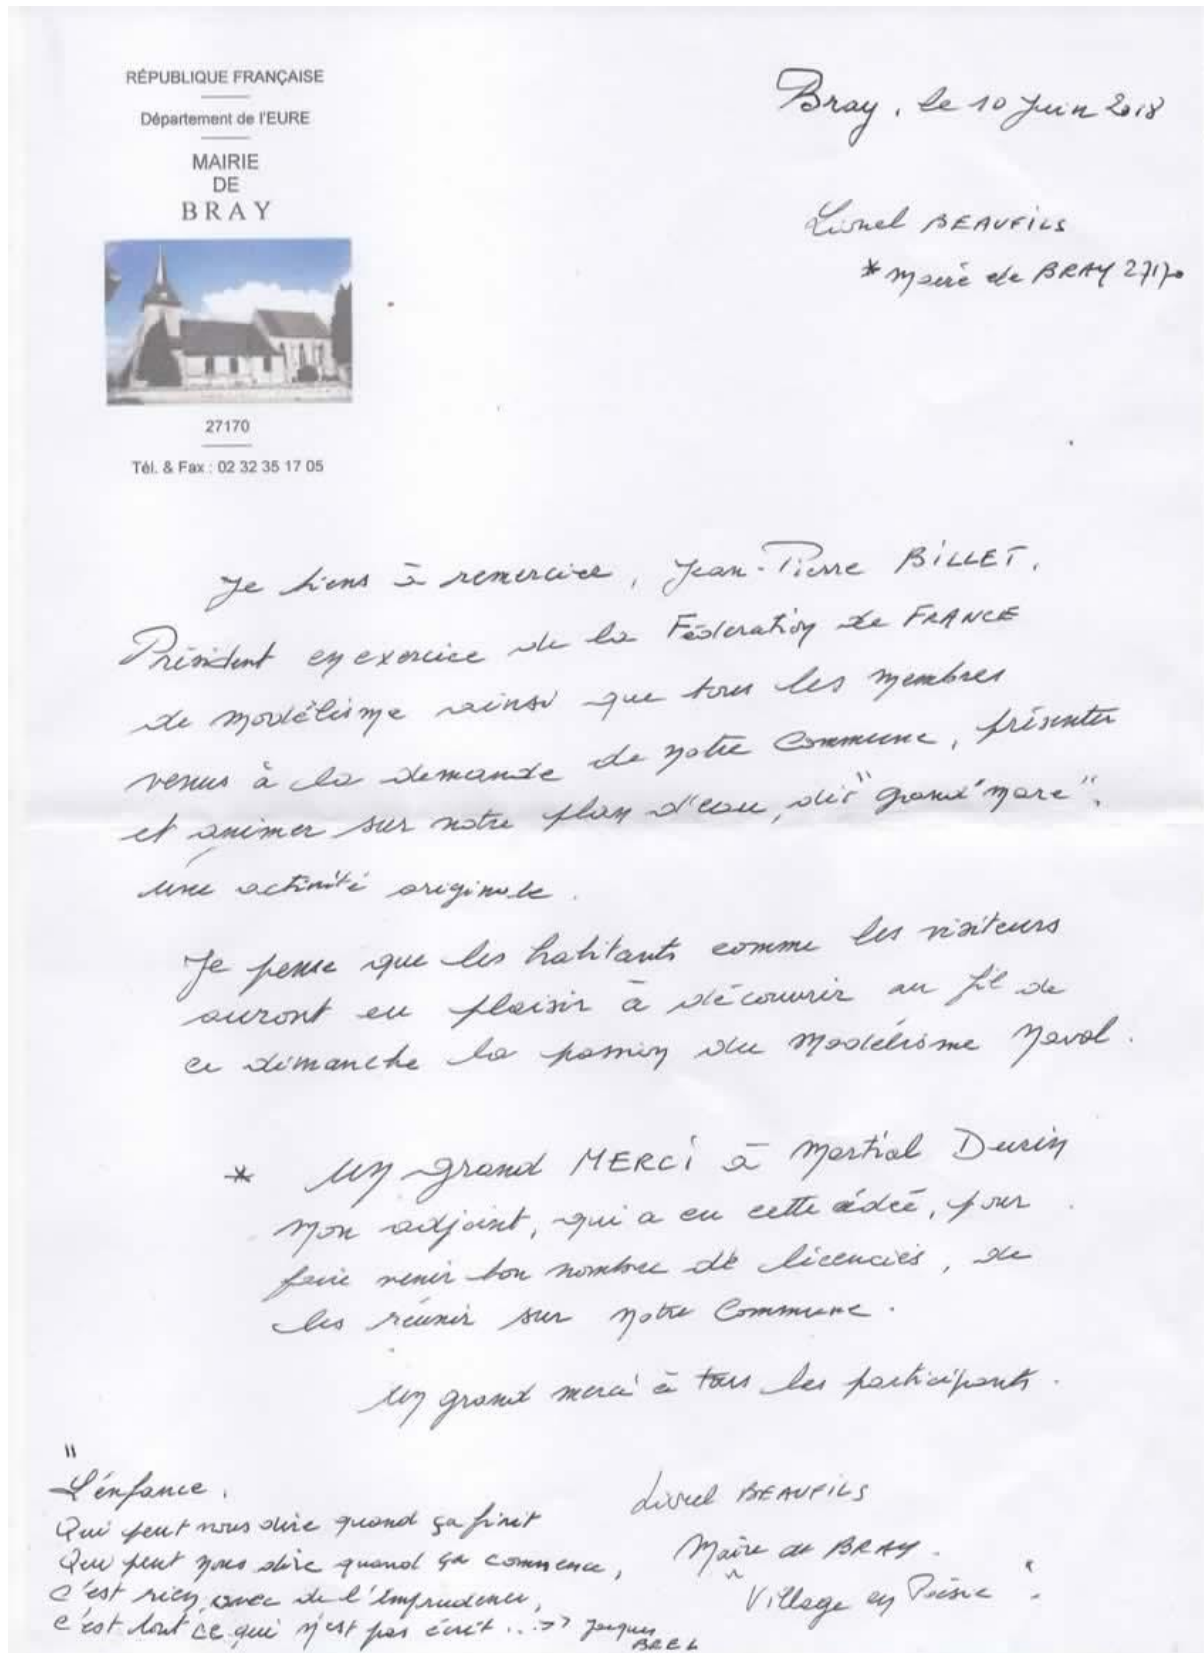 RÉPUBLIQUE FRANÇAISE
Département de l'EURE
MAIRIE
DE
BRAY
27170
Tél. & Fax : 02 32 35 17 05
Bray, le 10 Juin 2018
Lionel BEAUFILS
* Maire de BRAY 27170
Je tiens à remercier, Jean-Pierre BILLET,
Président en exercice de la Fédération de FRANCE
de modélisme ainsi que tous les membres
venus à la demande de notre Commune, présenter
et animer sur notre plan d'eau, dit "grand'mare",
une activité originale.
Je pense que les habitants comme les visiteurs
auront eu plaisir à découvrir au fil de
ce dimanche la passion du Modélisme Naval.
* Un grand MERCI à Martial Durin
mon adjoint, qui a eu cette idée, pour
faire venir bon nombre de licenciés, de
les réunir sur notre Commune.
Un grand merci à tous les participants.
"L'enfance,
Qui peut nous dire quand ça finit
Qui peut nous dire quand ça commence,
c'est rien, avec de l'imprudence,
c'est tout ce qui n'est pas écrit...>> Jacques
BREL
Lionel BEAUFILS
Maire de BRAY.
"Village en Poésie".